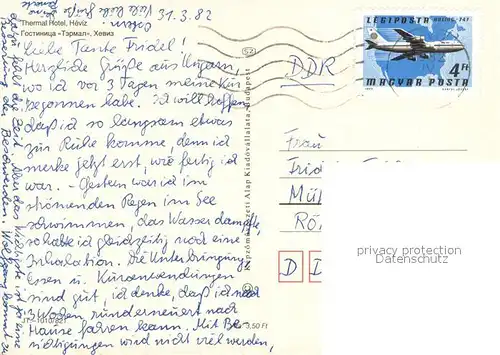 31.3.82
Thermal Hotel, Hévíz
Гостиница «Тэрмал», Хевиз
Liebe Tante Fridel!
Herzliche Grüße aus Ungarn,
wo ich vor 3 Tagen meine Kur
begonnen habe. Ich will hoffen,
daß ich so langsam etwas
zur Ruhe komme, denn ich
merke jetzt erst, wie fertig ich
war. - Gestern war ich im
strömenden Regen im See
schwimmen, das Wasser dampfte,
so hatte ich gleichzeitig noch eine
Inhalation. Die Unterbringung,
Essen u. Kuranwendungen
sind gut, ich denke, daß ich nach
3 Wochen, runderneuert nach
Hause fahren kann. Mit Be-
sichtigungen wird nicht viel werden,
JTS-1010/821
3,50 Ft
Képzőművészeti Alap Kiadóvállalata, Budapest
LÉGIPOSTA
BOEING-747
4 Ft
MAGYAR POSTA
DDR
Frau
Frid
Mü
Rö
D D
privacy protection
Datenschutz